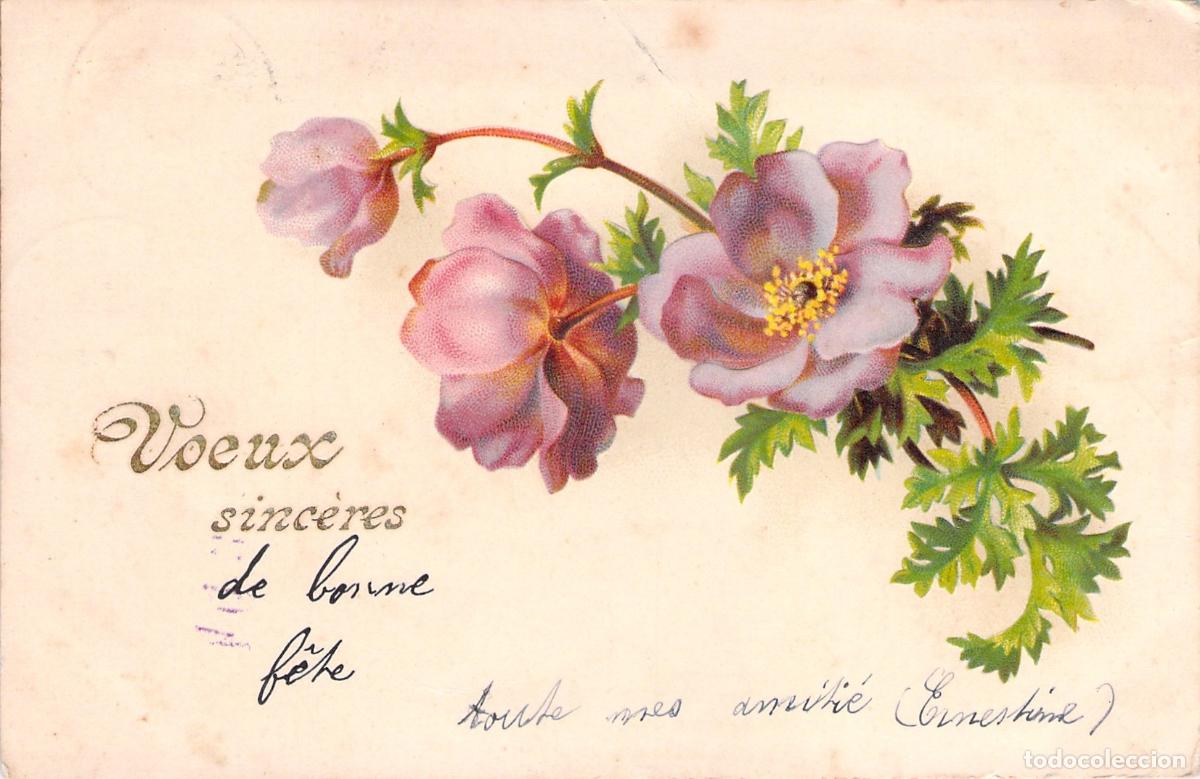 Voeux
sincères
de bonne
fête
toute mes amitié (Ernestine)
todocoleccion